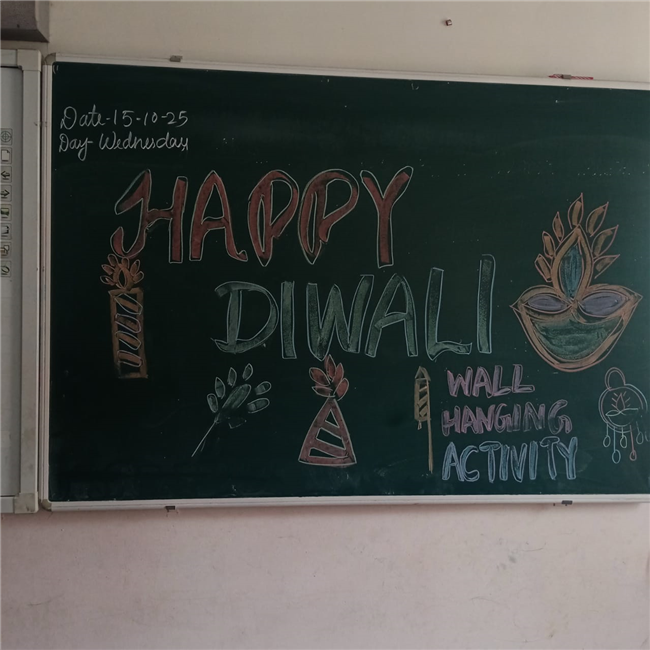 Date-15-10-25
Day-Wednesday
HAPPY
DIWALI
WALL
HANGING
ACTIVITY